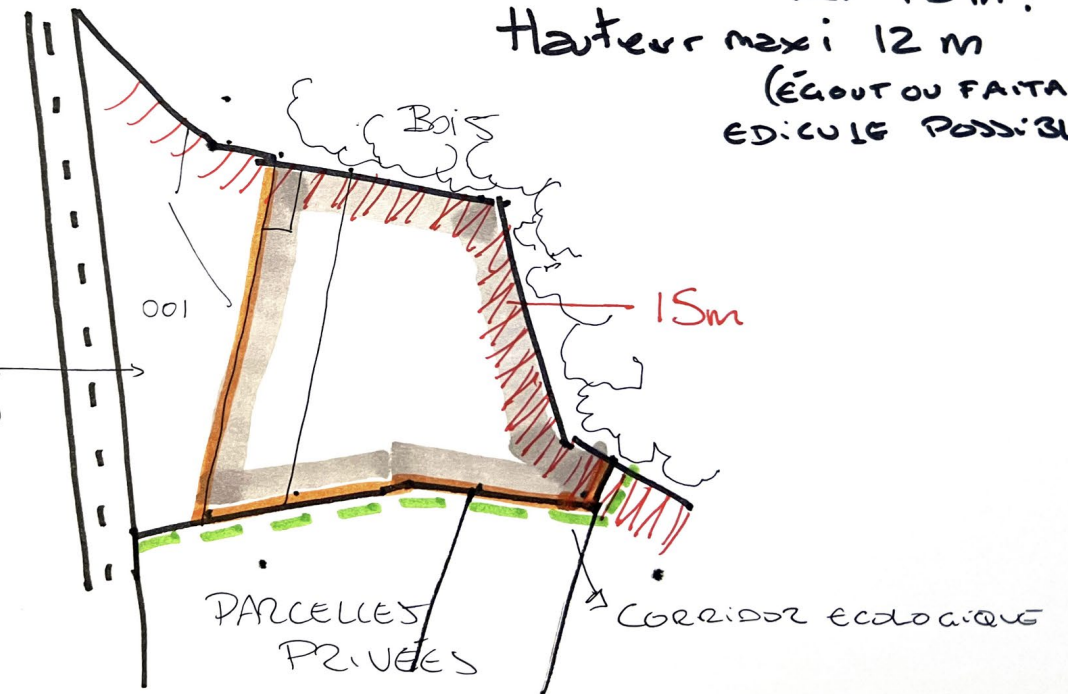 Hauteur maxi 12 m
(ÉGOUT OU FAITA
EDiCULE POSSiBL
BOiS
001
15m
PARCELLES
PRiVÉES
CORRiDOR ECOLOGiQUE